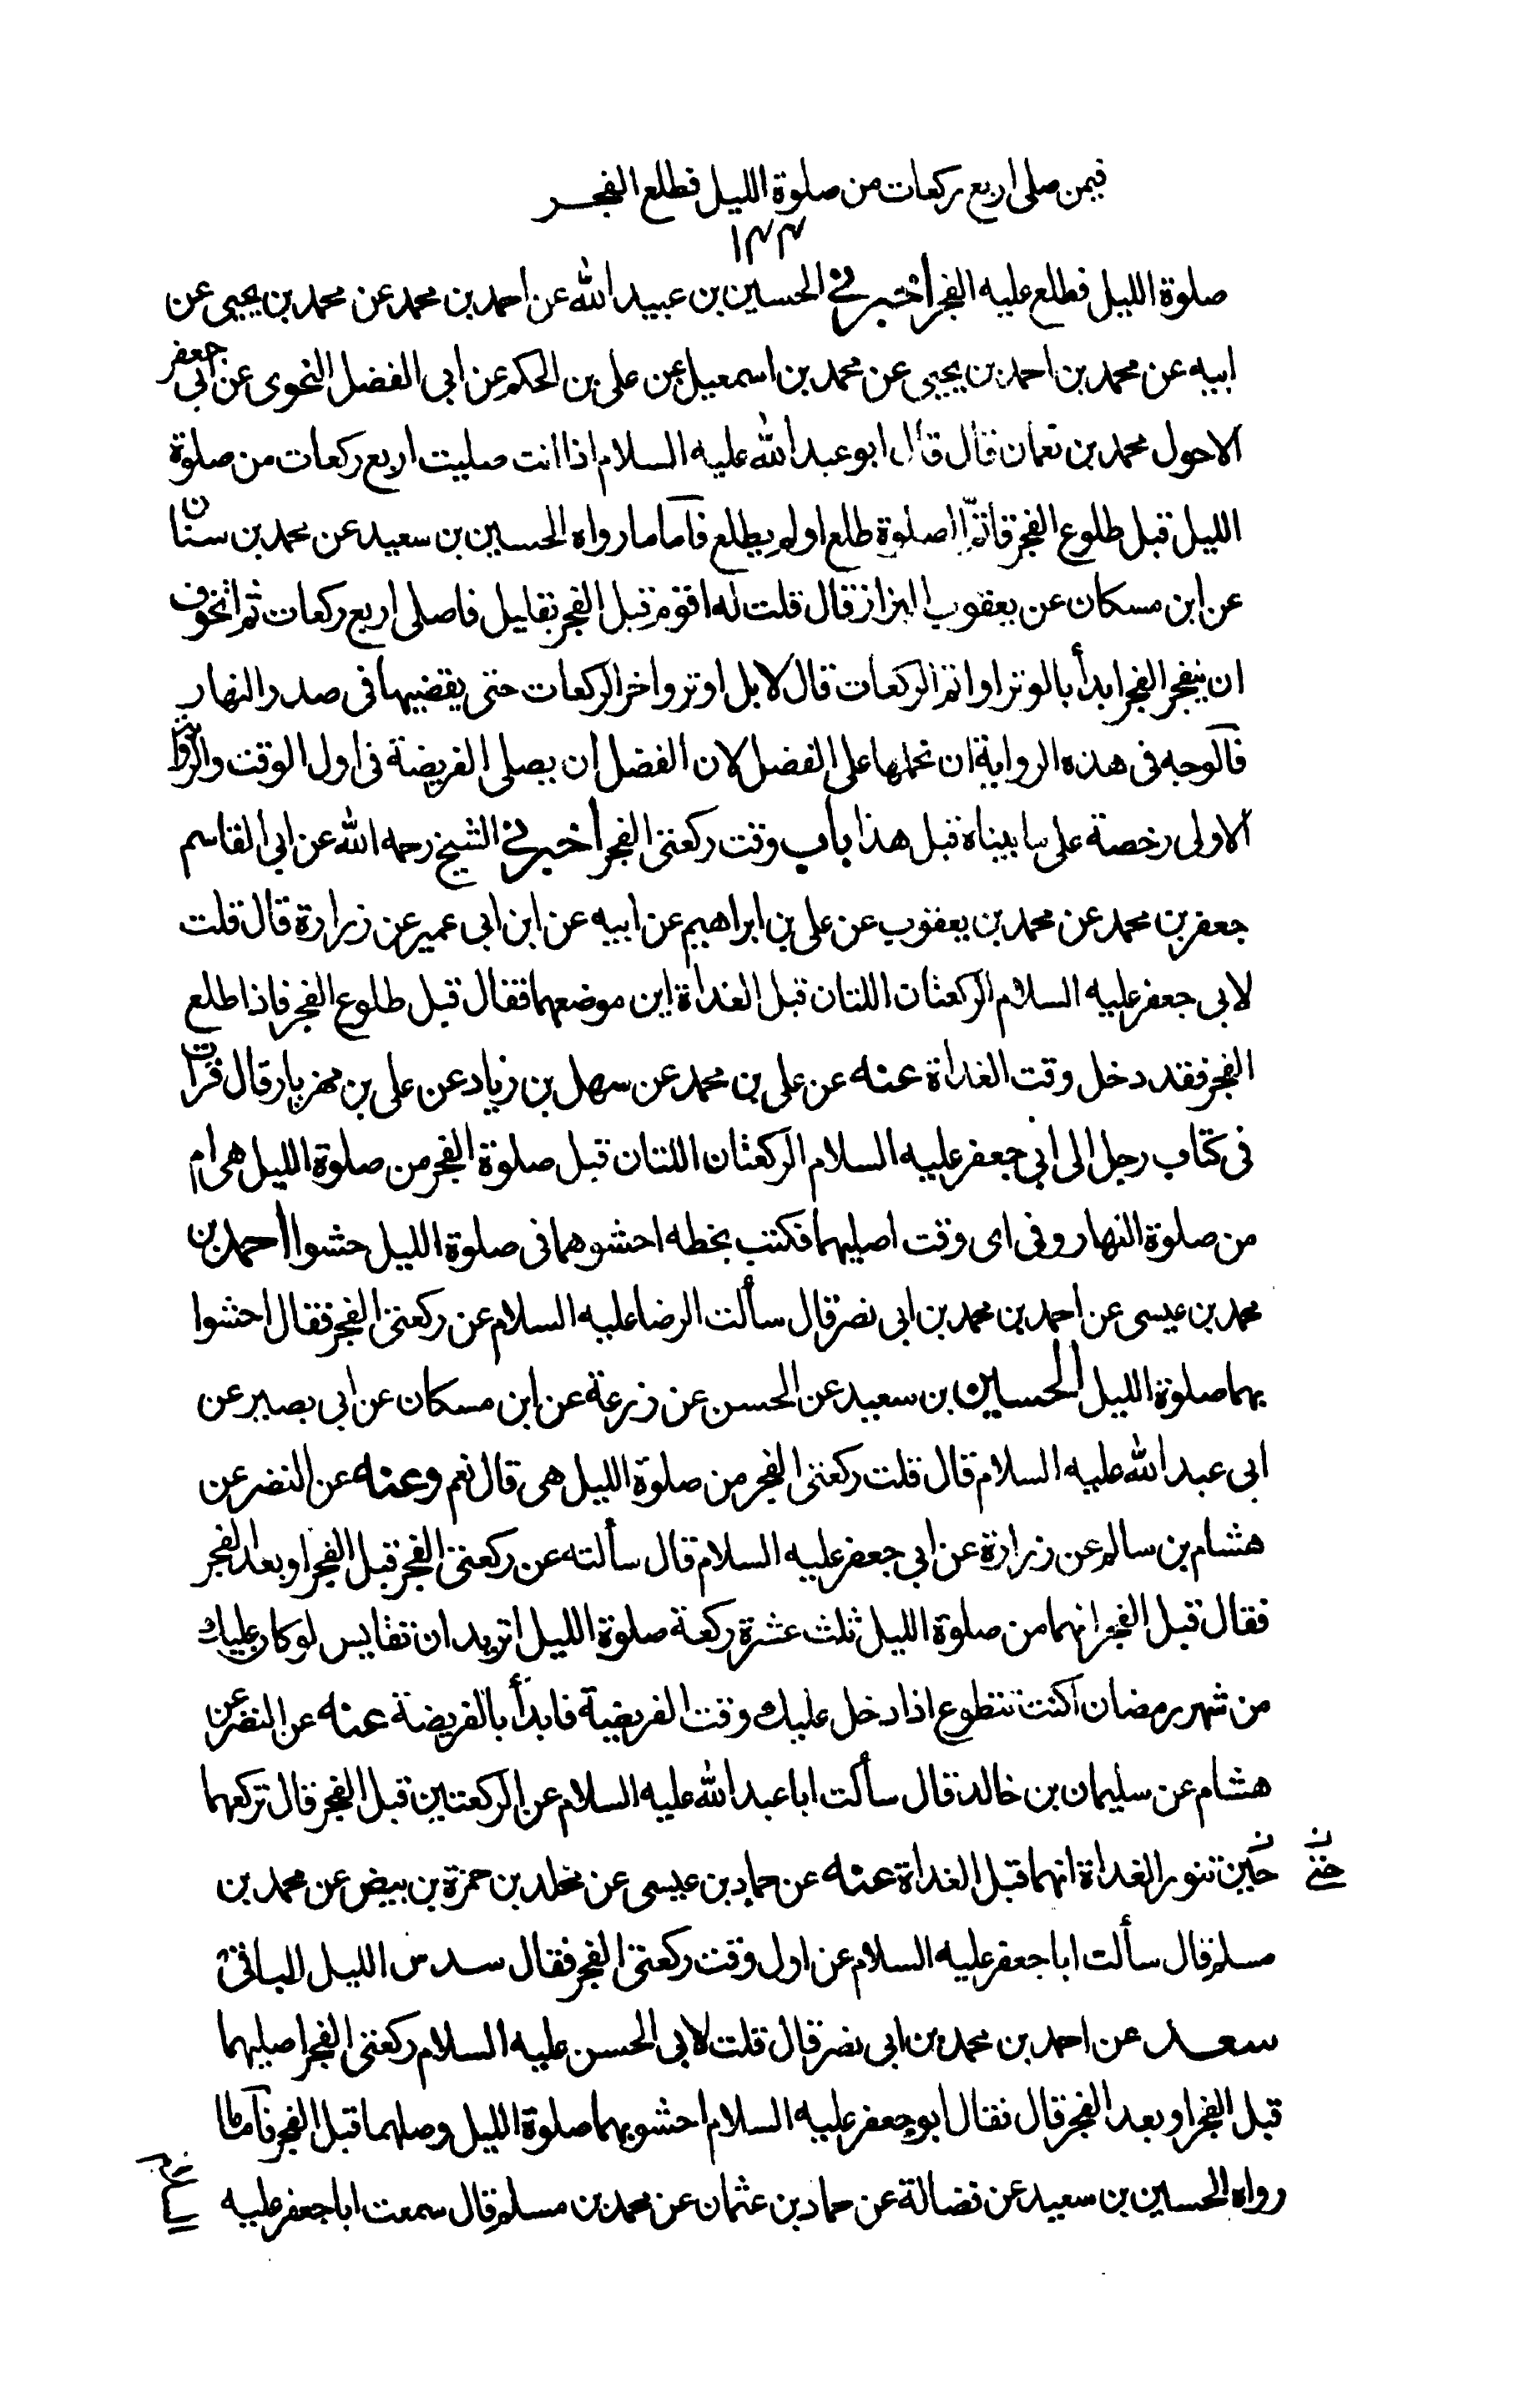 فيمن صلى اربع ركعات من صلوة الليل فطلع الفجر
١٤٣
صلوة الليل فطلع عليه الفجر أخبرني الحسين بن عبيد الله عن احمد بن محمد عن محمد بن يحيى عن
ابيه عن محمد بن احمد بن يحيى عن محمد بن اسمعيل عن على بن الحكم عن ابى الفضل النحوى عن ابى جعفر
الاحول محمد بن نعمان قال قال ابو عبد الله عليه السلام اذا انت صليت اربع ركعات من صلوة
الليل قبل طلوع الفجر فاتمّ الصلوة طلع او لم يطلع فاما ما رواه الحسين بن سعيد عن محمد بن سنان
عن ابن مسكان عن يعقوب البزاز قال قلت له اقوم قبل الفجر بقليل فاصلى اربع ركعات ثم اتخوف
ان ينفجر الفجر ابدأ بالوتر او اتم الركعات قال لا بل اوتر واخر الركعات حتى يقضيها فى صدر النهار
فالوجه فى هذه الرواية ان نحملها على الفضل لان الفضل ان يصلى الفريضة فى اول الوقت والرواية
الاولى رخصة على ما بيناه قبل هذا باب وقت ركعتى الفجر أخبرني الشيخ رحمه الله عن ابى القاسم
جعفر بن محمد عن محمد بن يعقوب عن على بن ابراهيم عن ابيه عن ابن ابى عمير عن زرارة قال قلت
لابى جعفر عليه السلام الركعتان اللتان قبل الغداة اين موضعهما فقال قبل طلوع الفجر فاذا طلع
الفجر فقد دخل وقت الغداة عنه عن على بن محمد عن سهل بن زياد عن على بن مهزيار قال قرأت
فى كتاب رجل الى ابى جعفر عليه السلام الركعتان اللتان قبل صلوة الفجر من صلوة الليل هى ام
من صلوة النهار وفى اى وقت اصليهما فكتب بخطه احشوهما فى صلوة الليل حشوا احمد بن
محمد بن عيسى عن احمد بن محمد بن ابى نصر قال سألت الرضا عليه السلام عن ركعتى الفجر فقال احشوا
بهما صلوة الليل الحسين بن سعيد عن الحسن عن زرعة عن ابن مسكان عن ابى بصير عن
ابى عبد الله عليه السلام قال قلت ركعتى الفجر من صلوة الليل هى قال نعم وعنه عن النضر عن
هشام بن سالم عن زرارة عن ابى جعفر عليه السلام قال سألته عن ركعتى الفجر قبل الفجر او بعد الفجر
فقال قبل الفجر انهما من صلوة الليل ثلث عشرة ركعة صلوة الليل اتريد ان تقايس لو كان عليك
من شهر رمضان اكنت تتطوع اذا دخل عليك وقت الفريضة فابدأ بالفريضة عنه عن النضر عن
هشام عن سليمان بن خالد قال سألت ابا عبد الله عليه السلام عن الركعتين قبل الفجر قال تركعهما
حين تنور الغداة انهما قبل الغداة عنه عن حماد بن عيسى عن مخلد بن حمزة بن بيض عن محمد بن
حتى ن
مسلم قال سألت ابا جعفر عليه السلام عن اول وقت ركعتى الفجر فقال سدس الليل الباقى
سعد عن احمد بن محمد بن ابى نصر قال قلت لابى الحسن عليه السلام ركعتى الفجر اصليهما
قبل الفجر او بعد الفجر قال فقال ابو جعفر عليه السلام احشو بهما صلوة الليل وصلهما قبل الفجر فاما ما
رواه الحسين بن سعيد عن فضالة عن حماد بن عثمان عن محمد بن مسلم قال سمعت ابا جعفر عليه
السلام